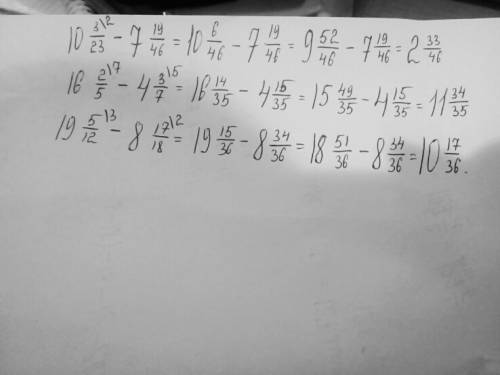 10 3/23\2 − 7 19/46 = 10 6/46 − 7 19/46 = 9 52/46 − 7 19/46 = 2 33/46
16 2/5\7 − 4 3/7\5 = 16 14/35 − 4 15/35 = 15 49/35 − 4 15/35 = 11 34/35
19 5/12\3 − 8 17/18\2 = 19 15/36 − 8 34/36 = 18 51/36 − 8 34/36 = 10 17/36.